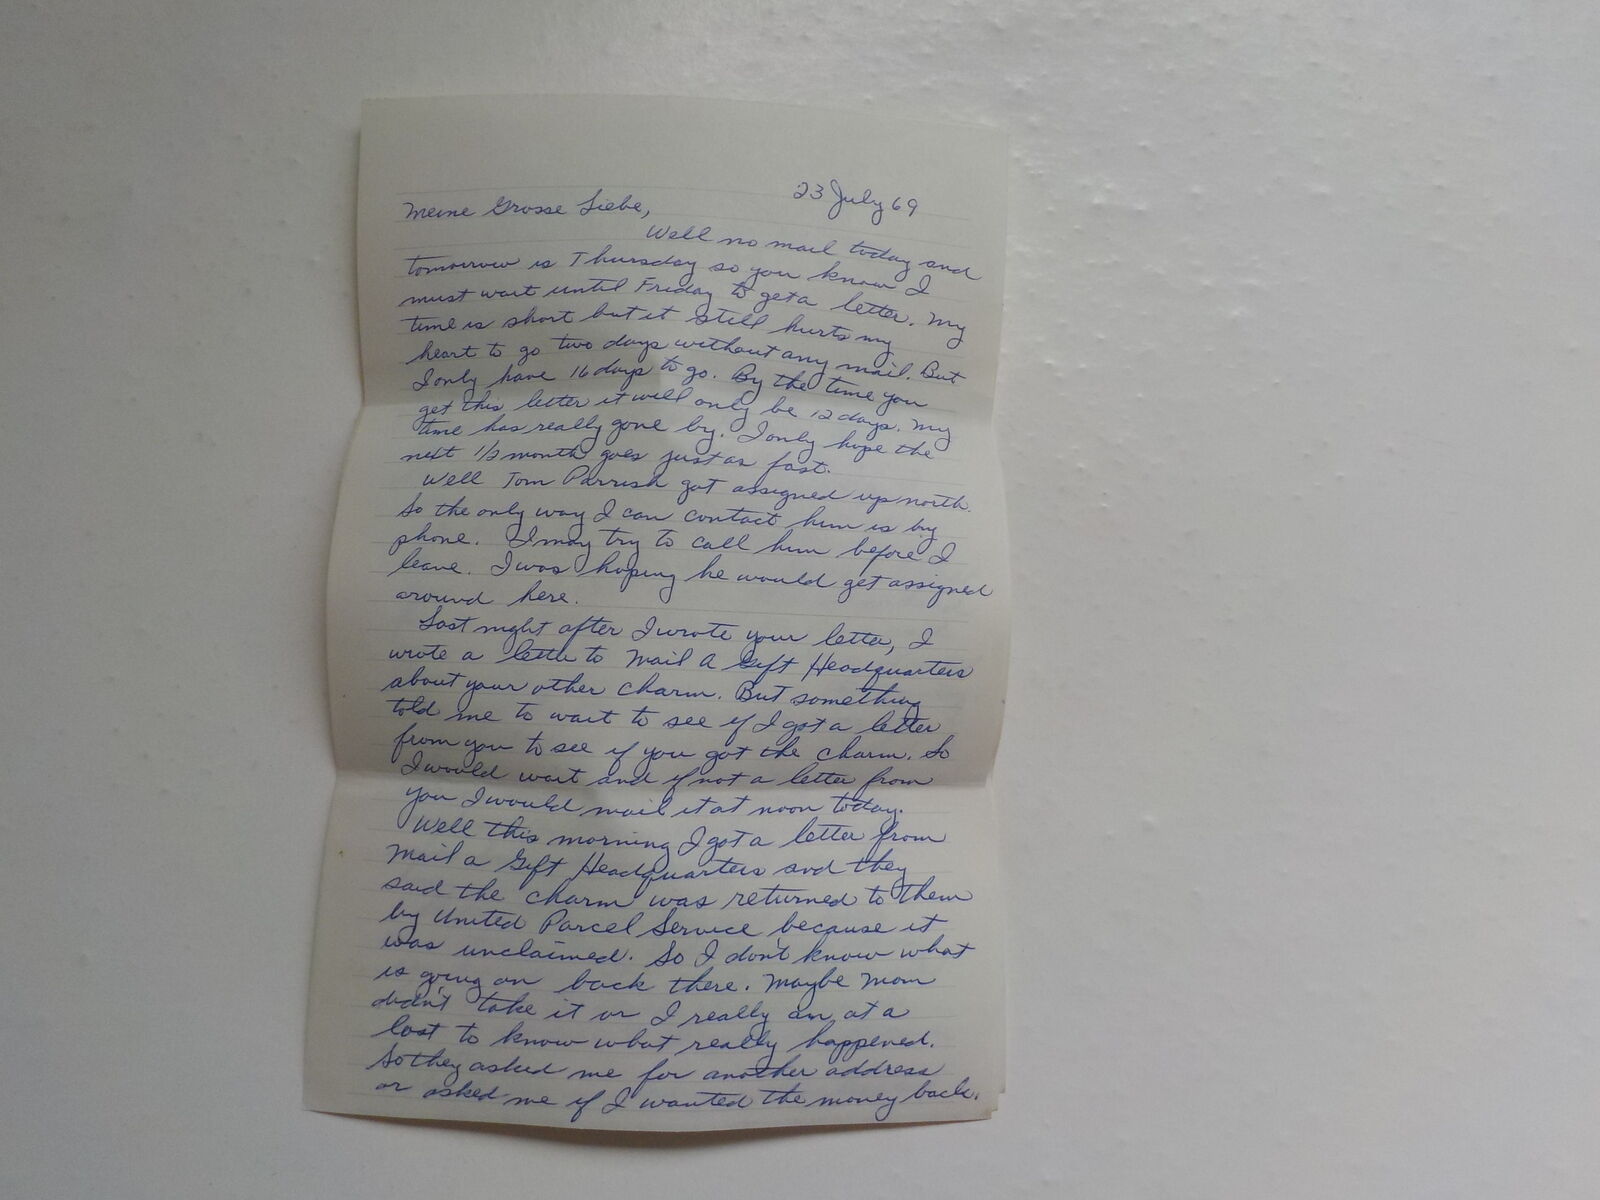 23 July 69
Meine Grosse Liebe,
Well no mail today and
tomorrow is Thursday so you know I
must wait until Friday to get a letter. My
time is short but it still hurts my
heart to go two days without any mail. But
I only have 16 days to go. By the time you
get this letter it will only be 12 days. My
time has really gone by. I only hope the
next 1/2 month goes just as fast.
Well Tom Parrish got assigned up north.
So the only way I can contact him is by
phone. I may try to call him before I
leave. I was hoping he would get assigned
around here.
Last night after I wrote your letter, I
wrote a letter to Mail A Gift Headquarters
about your other charm. But something
told me to wait to see if I got a letter
from you to see if you got the charm. So
I would wait and if not a letter from
you I would mail it at noon today.
Well this morning I got a letter from
Mail a Gift Headquarters and they
said the charm was returned to them
by United Parcel Service because it
was unclaimed. So I don't know what
is going on back there. Maybe Mom
didn't take it or I really am at a
lost to know what really happened.
So they asked me for another address
or asked me if I wanted the money back.